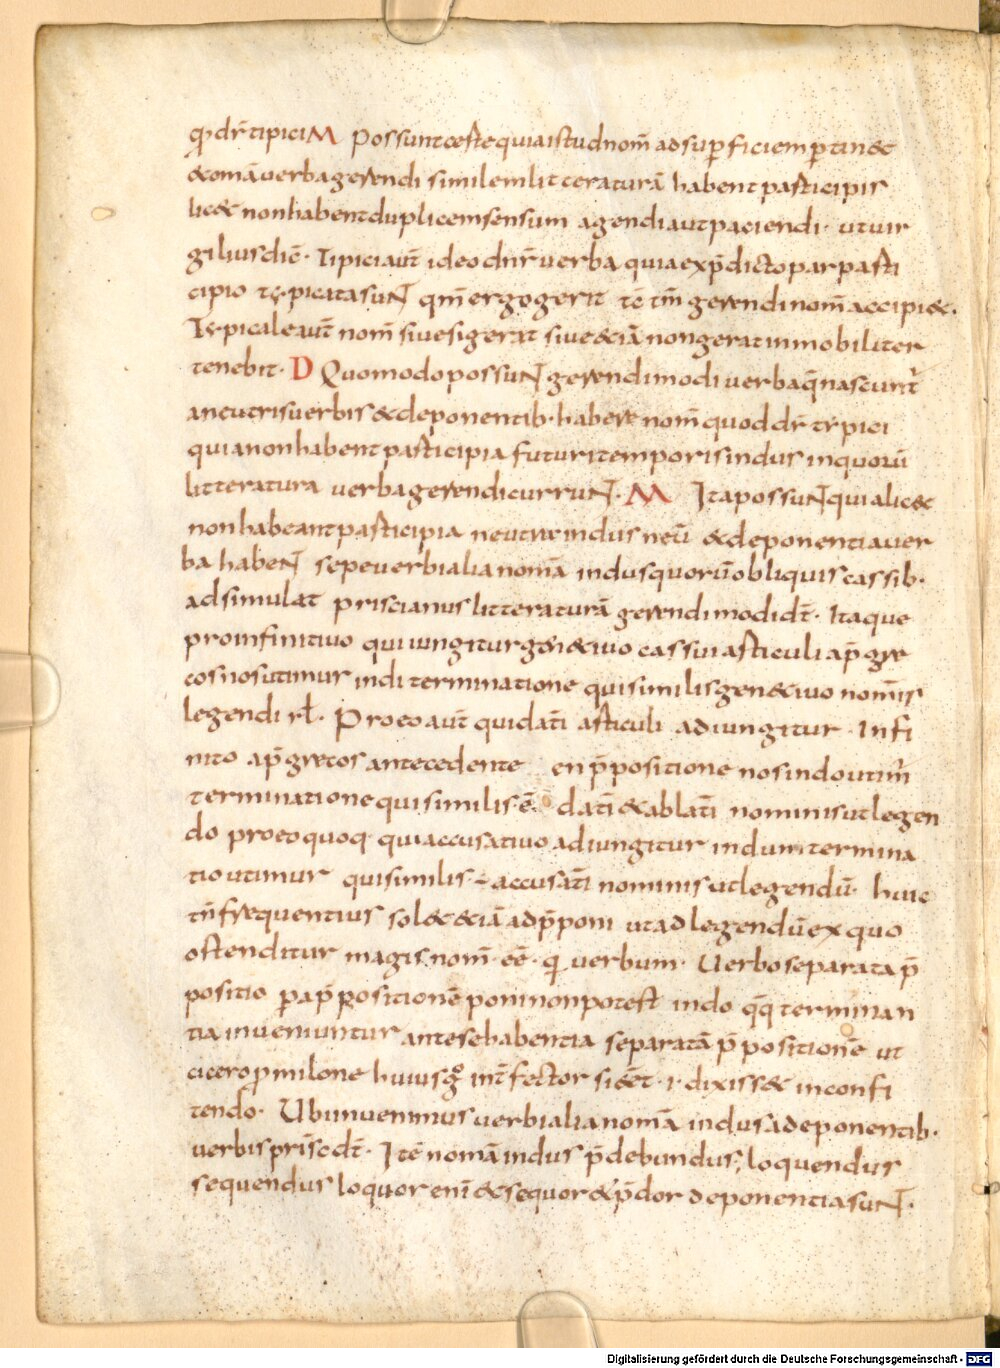 qđ dr̄ tipici M Possunt certe quia istud nom̄ ad sup̄ficiem p̄tin&
& om̄ā verba gerendi similem litteraturā habent participiis
lic& non habent duplicem sensum agendi aut paciendi · ut uir
gilius dic̄ · Tipici aut̄ ideo dnr̄ verba quia exp̄dicto par parti
cipio typicata suNT qm̄ ergo gerit tē tm̄ gerendi nom̄ accipi& ·
Typicale aut̄ nom̄ siue si gerat siue &iā non gerat inmobiliter
tenebit · D Quomodo possuNT gerendi modi verba q̄ nascunt̄
a neutris uerbis & deponentib· habere nom̄ quod dr̄ typici
quia non habent participia futuri temporis in dus in quorū
litteratura verba gerendi curruNT · M Ita possuNT quia lic&
non habeant participia neutra in dus neu & deponentia uer
ba habeNT sepe uerbialia nomā in dus quorū obliquis cassib·
adsimulat priscianus litteraturā gerendi modi dt̄ · Itaque
pro infinitivo qui iungitur gen&iuo cassui articuli ap̄ gre
cos nos utimur in di terminatione qui similis gen&iuo nom̄is
legendi rl̄ · Pro eo aut̄ qui datī articuli adiungitur · Infi
nito ap̄ grecos antecedente en p̄positione nos in do utim̄
terminatione qui similis ē datī & ablatī nominis ut legen
do pro eo quoq· qui accusativo adiungitur in dum termina
tio utimur qui similis ÷ accusatī nominis ut legendū · huic
tn̄ frequentius sol& &iā ad p̄poni ut ad legendū ex quo
ostenditur magis nom̄ · eē · q̄ verbum · Uerbo separata p̄
positio p̄ ap̄positionē poni non potest in do q̄q terminan
tia inueniuntur ante se habentia separatā p̄positionē ut
cicero p milone huius g̊ int̄fector si eēt · i · dixiss& in confi
tendo · Ubi inuenimus verbialia nomā in dus a deponentib·
verbis prisc̄ dt̄ · Itē nomā in dus p̄debundus, loquendus
sequendus loquor eni & sequor & p̄dor deponentia suNT ·
Digitalisierung gefördert durch die Deutsche Forschungsgemeinschaft - DFG